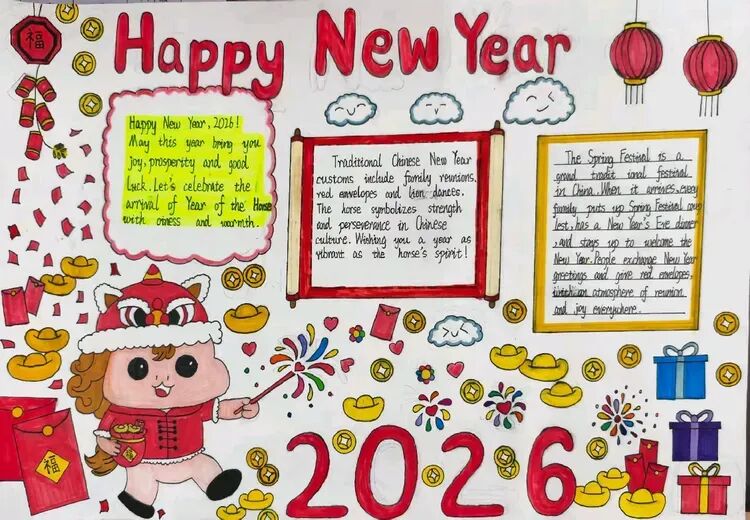 Happy New Year
福
Happy New Year, 2026!
May this year bring you
joy, prosperity and good
luck. Let's celebrate the
arrival of Year of the Horse
with and warmth.
Traditional Chinese New Year
customs include family reunions,
red envelopes and lion dances.
The horse symbolizes strength
and perseverance in Chinese
culture. Wishing you a year as
vibrant as the horse's spirit!
The Spring Festival is a
grand tradit ional festival
in China. When it arrives, every
family puts up Spring Festival coup
lest, has a New Year's Eve dinner
, and stays up to welcome the
New Year. People exchange New Year
greetings and give red envelopes,
an atmosphere of reunion
and joy everywhere.
福
福
2026